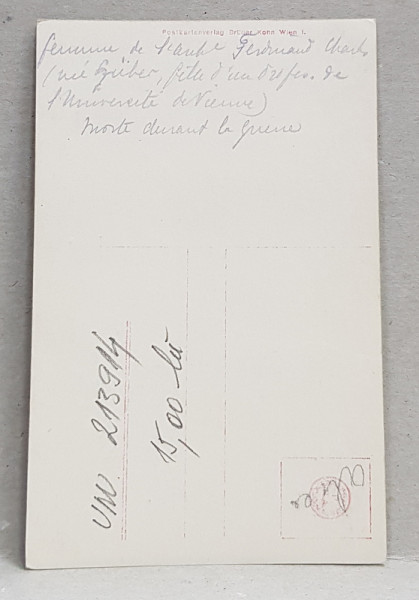 Postkartenverlag Brüder Kohn Wien I.
femme de l'archd. Ferdinand Charles
(née Czuber, fille d'un Profess. de
l'Université de Vienne)
Morte durant la guerre
VM. 213914
15,00 lei